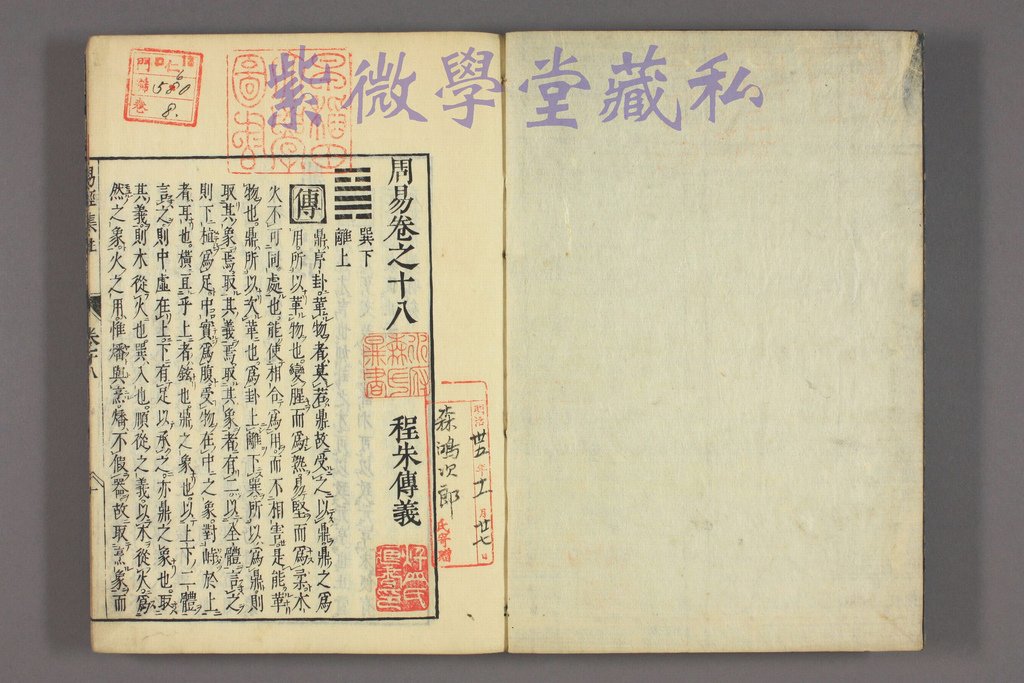 紫微學堂藏私
周易卷之十八
程朱傳義
巽下
離上
傳
鼎序卦革物者莫若鼎故受之以鼎鼎之爲
用所以革物也變腥而爲熟易堅而爲柔水
火不可同處也能使相合爲用而不相害是能革
物也鼎所以次革也爲卦上離下巽所以爲鼎則
取其象焉取其義焉取其象者有二以全體言之
則下植爲足中實爲腹受物在中之象對峙於上
者耳也橫亘乎上者鉉也鼎之象也以上下二體
言之則中虛在上下有足以承之亦鼎之象也取
其義則木從火也巽入也順從之義以木從火爲
然之象火之用惟燔與烹燔不假器故取烹象而
明治卅五年十一月廿七日
森鴻次郎
氏寄贈
仁
門
580
8.
卷